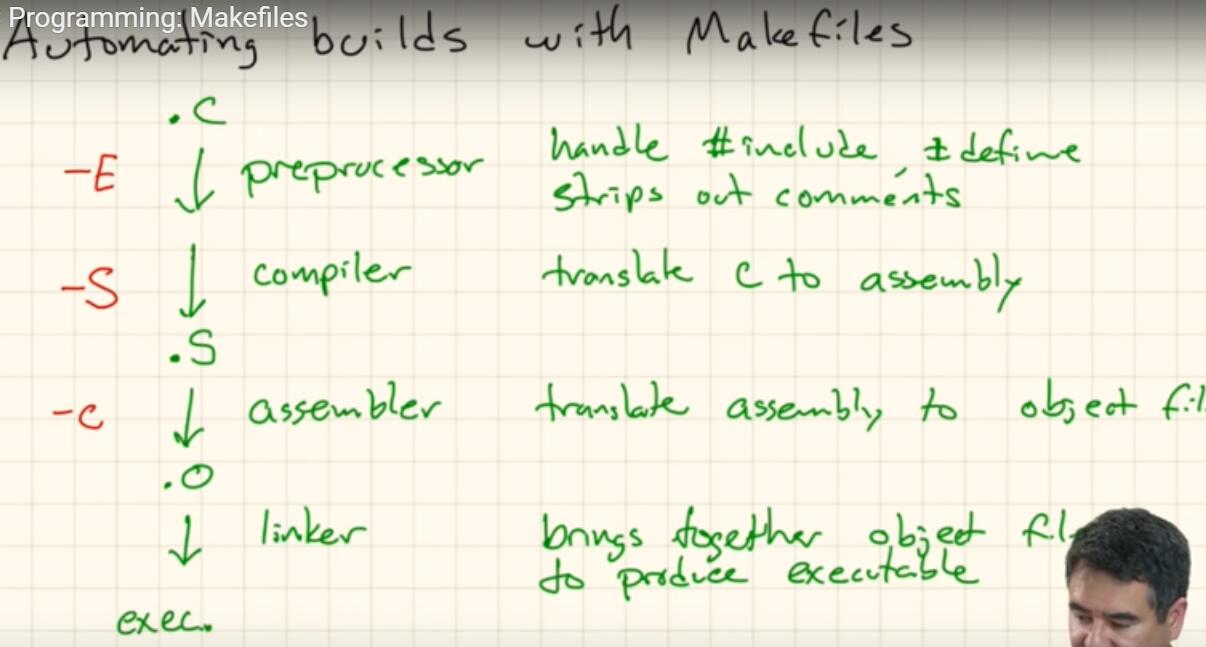 Programming: Makefiles
Automating builds with Makefiles
.C
-E preprocessor handle #include, #define
strips out comments
-S compiler translate C to assembly
.S
-c assembler translate assembly to object
.O
linker brings together object
to produce executable
exec.